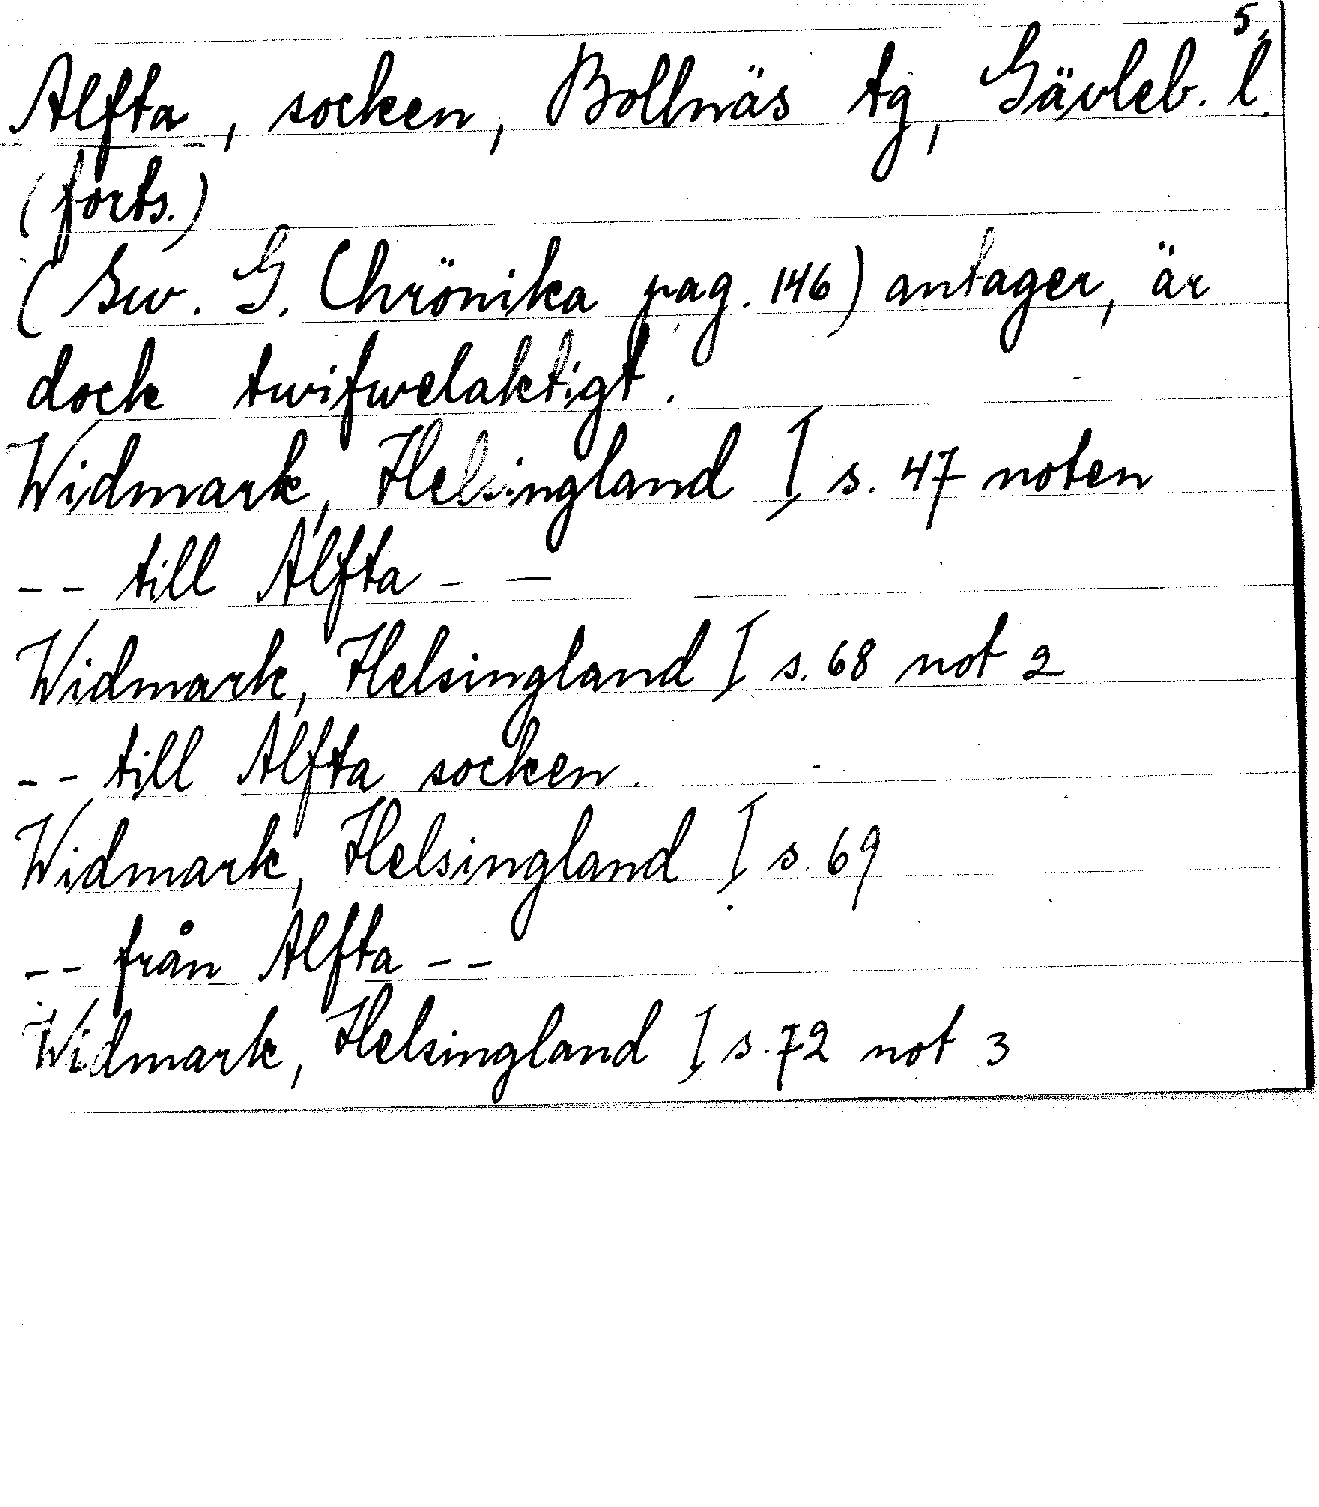 5.
Alfta, socken, Bollnäs tg, Gävleb. l.
(forts.)
(Sw. G. Chrönika pag. 146) antager, är
dock twifwelaktigt.
Widmark, Helsingland I s. 47 noten
-- till Alfta - -
Widmark, Helsingland I s. 68 not 2
-- till Alfta socken.
Widmark, Helsingland I s. 69
-- från Alfta --
Widmark, Helsingland I s. 72 not 3